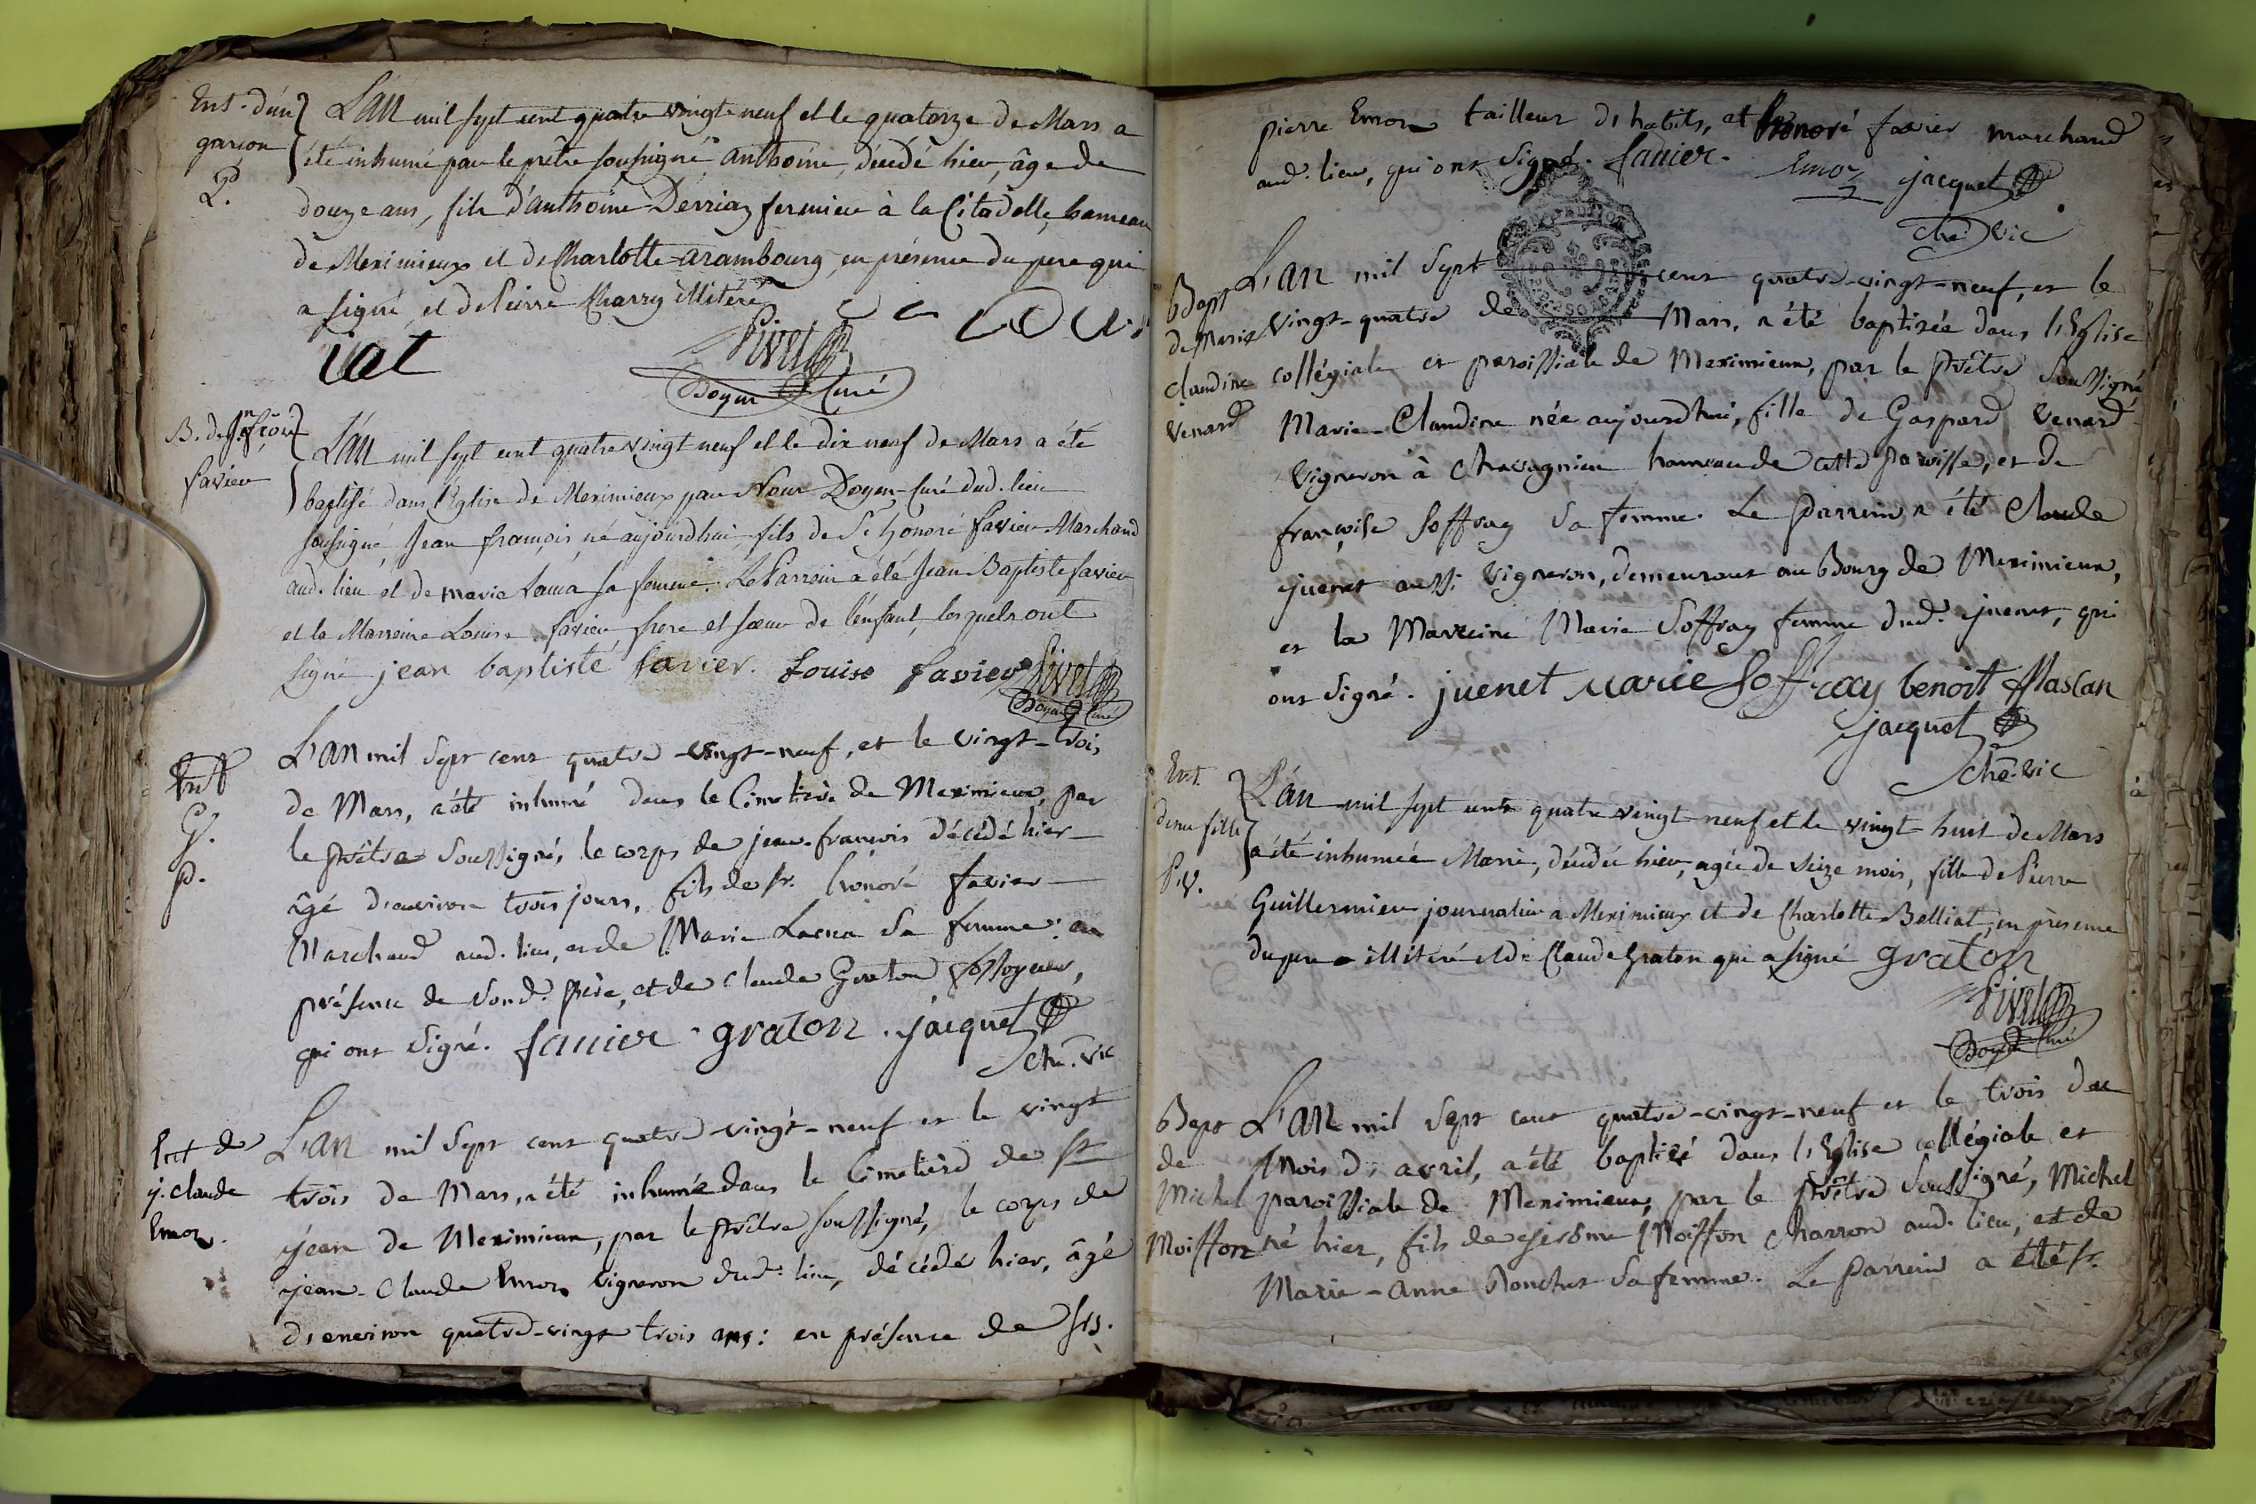 Ent. d'un
garçon
P.
L'an mil sept cent quatre vingt neuf et le quatorze de Mars a
été inhumé par le prêtre soussigné, anthoine, décédé hier, âge de
douze ans, fils d'anthoine Derriaz fermier à la Citadelle, hameau
de Meximieux et de Charlotte arambourg, en présence du pere qui
a signé, et de Pierre Charry illitéré
Pivet
Doyen Curé
B. de Jn fçois
favier
L'an mil sept cent quatre vingt neuf et le dix neuf de Mars a été
baptisé dans l'Eglise de Meximieux par Nous Doyen-Curé dud. lieu
soussigné, Jean françois, né aujourdhui, fils de Sr honoré favier Marchand
aud. lieu et de marie Lacua sa femme. Le Parrein a été Jean Baptiste favier
et la Marreine Louise favier, frere et sœur de l'enfant, lesquels ont
signé jean baptiste favier. Louise favier Pivet
Doyen Curé
Ent
G.
p.
L'an mil sept cent quatre-vingt-neuf, et le vingt-trois
de Mars, a été inhumé dans le Cimetière de Meximieux, par
le prêtre soussigné, le corps de jean-francois décédé hier
âgé d'environ trois jours, fils de sr. honoré favier
Marchand aud. lieu, et de Marie Lacua sa femme: en
présence de sond. père, et de Claude Graton fossoyeur,
qui ont signé. favier. graton. jacquet
cha. vic
Ent de
j. claude
Emoz.
L'an mil sept cent quatre-vingt-neuf et le vingt
trois de Mars, a été inhumé dans le Cimetière de st
jean de Meximieux, par le prêtre soussigné, le corps de
jean-Claude Emoz vigneron dud. lieu, décédé hier, âgé
d'environ quatre-vingt trois ans: en présence de srs.
pierre Emoz tailleur d'habits, et honoré favier marchand
aud. lieu, qui ont signé. favier. Emoz jacquet
cha. vic
Bapt
de Marie
Claudine
Venard
L'an mil sept cent quatre-vingt-neuf, et le
vingt-quatre de Mars, a été baptisée dans l'Eglise
collégiale et paroissiale de Meximieux, par le prêtre soussigné
Marie-Claudine née aujourdhui, fille de Gaspard Venard
vigneron à Chavagnieu hameau de cette paroisse, et de
françoise soffray sa femme. Le parrein a été Claude
juenet aussi vigneron, demeurant au Bourg de Meximieux,
et la Marreine Marie Soffray femme dud. juenet, qui
ont signé. juenet marie Soffray benoit Mascan
jacquet
cha. vic
Ent.
d'une fille
Piv.
L'an mil sept cent quatre vingt neuf et le vingt huit de Mars
a été inhumée Marie, décédée hier, agée de seize mois, fille de Pierre
Guillermier journalier a Meximieux et de Charlotte Belliat, en présence
du pere illitéré et de Claude graton qui a signé graton
Pivet
Doyen Curé
Bapt
de
Michel
Moiffon
L'an mil sept cent quatre-vingt-neuf et le trois du
mois d'avril, a été baptisé dans l'Eglise collégiale et
paroissiale de Meximieux, par le prêtre soussigné, Michel
né hier, fils de jerôme Moiffon charron aud. lieu, et de
Marie-anne Ponchet sa femme. Le parrein a été sr.